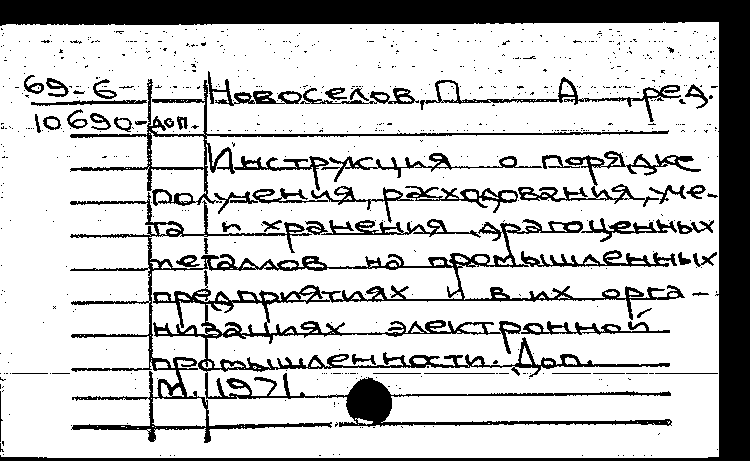 69-6 Новоселов, П А , ред.
10690-доп.
Инструкция о порядке
получения, расходования, уче-
та и хранения драгоценных
металлов на промышленных
предприятиях и в их орга-
низациях электронной
промышленности. Доп.
М. 1971.